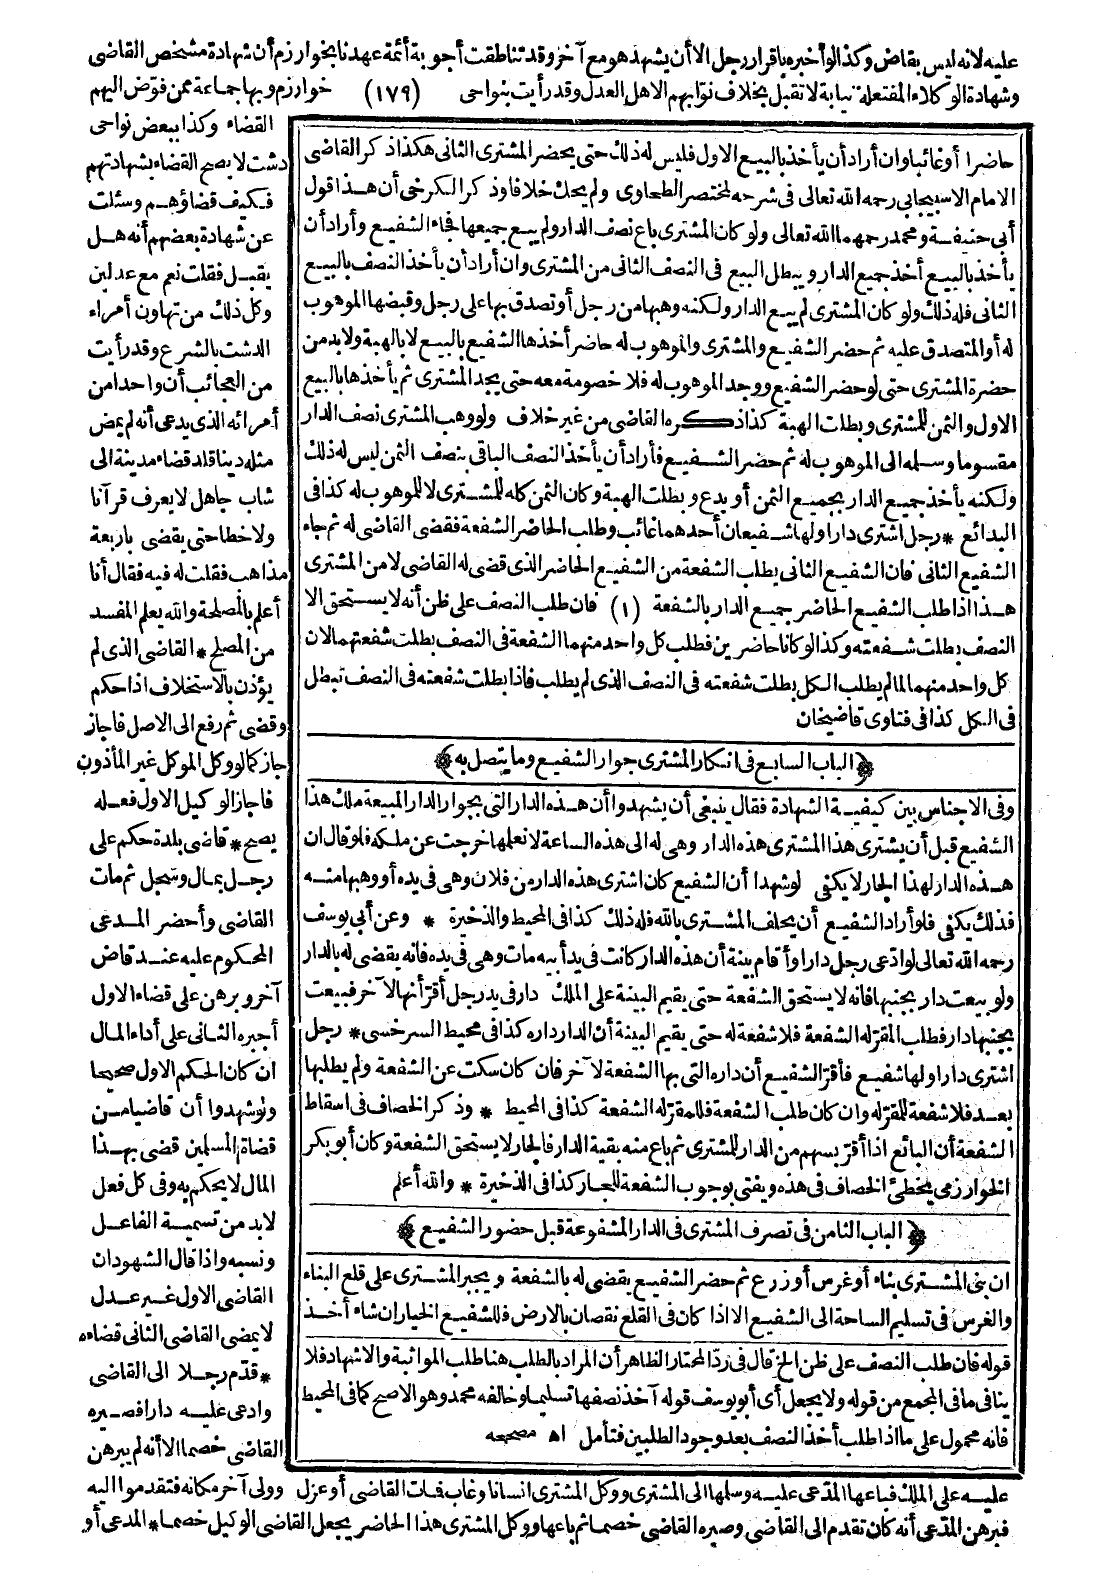 عليه لانه ليس بقاض وكذا لو أخبره باقرار رجل الا أن يشهد هو مع آخر وقد تناطقت أجوبة أئمة عهدنا بخوارزم أن شهادة مشخص القاضى
وشهادة الوكلاء المفتعلة نيابة لا تقبل بخلاف نوابهم الاهل العدل وقد رأيت بنواحى (١٧٩) خوارزم وبها جماعة ممن فوض اليهم
القضاء وكذا ببعض نواحى
دشت لا يصح القضاء بشهادتهم
فكيف قضاؤهم وسئلت
عن شهادة بعضهم أنه هل
يقبل فقلت نعم مع عدلين
وكل ذلك من تهاون أمراء
الدشت بالشرع وقد رأيت
من العجائب أن واحدا من
أمرائه الذى يدعى أنه لم يمض
مثله دينا قلد قضاء مدينة الى
شاب جاهل لا يعرف قرآنا
ولا خطا حتى يقضى باربعة
مذاهب فقلت له فيه فقال أنا
أعلم بالمصلحة والله يعلم المفسد
من المصلح * القاضى الذى لم
يؤذن بالاستخلاف اذا حكم
وقضى ثم رفع الى الاصل فاجاز
جاز كما لو وكل الموكل غير المأذون
فاجاز الوكيل الاول فعله
يصح * قاضى بلدة حكم على
رجل بمال وسجل ثم مات
القاضى وأحضر المدعى
المحكوم عليه عند قاض
آخر وبرهن على قضاء الاول
أجبره الثانى على أداء المال
ان كان الحكم الاول صحيحا
ولو شهدوا أن قاضيا من
قضاة المسلمين قضى بهذا
المال لا يحكم به وفى كل فعل
لا بد من تسمية الفاعل
ونسبه واذا قال الشهود ان
القاضى الاول غير عدل
لا يمضى القاضى الثانى قضاءه
* قدم رجلا الى القاضى
وادعى عليه دارا فصيره
القاضى خصما الا أنه لم يبرهن
حاضرا أو غائبا وان أراد أن يأخذ بالبيع الاول فليس له ذلك حتى يحضر المشترى الثانى هكذا ذكر القاضى
الامام الاسبيجابى رحمه الله تعالى فى شرحه لمختصر الطحاوى ولم يحك خلافا وذكر الكرخى أن هذا قول
أبى حنيفة ومحمد رحمهما الله تعالى ولو كان المشترى باع نصف الدار ولم يبع جميعها فجاء الشفيع وأراد أن
يأخذ بالبيع أخذ جميع الدار ويبطل البيع فى النصف الثانى من المشترى وان أراد أن يأخذ النصف بالبيع
الثانى فله ذلك ولو كان المشترى لم يبع الدار ولكنه وهبها من رجل أو تصدق بها على رجل وقبضها الموهوب
له أو المتصدق عليه ثم حضر الشفيع والمشترى والموهوب له حاضر أخذها الشفيع بالبيع لا بالهبة ولا بد من
حضرة المشترى حتى لو حضر الشفيع ووجد الموهوب له فلا خصومة معه حتى يجد المشترى ثم يأخذها بالبيع
الاول والثمن للمشترى وبطلت الهبة كذا ذكره القاضى من غير خلاف ولو وهب المشترى نصف الدار
مقسوما وسلمه الى الموهوب له ثم حضر الشفيع فأراد أن يأخذ النصف الباقى بنصف الثمن ليس له ذلك
ولكنه يأخذ جميع الدار بجميع الثمن أو يدع وبطلت الهبة وكان الثمن كله للمشترى لا للموهوب له كذا فى
البدائع * رجل اشترى دارا ولها شفيعان أحدهما غائب وطلب الحاضر الشفعة فقضى القاضى له ثم جاء
الشفيع الثانى فان الشفيع الثانى يطلب الشفعة من الشفيع الحاضر الذى قضى له القاضى لا من المشترى
هذا اذا طلب الشفيع الحاضر جميع الدار بالشفعة (١) فان طلب النصف على ظن أنه لا يستحق الا
النصف بطلت شفعته وكذا لو كانا حاضرين فطلب كل واحد منهما الشفعة فى النصف بطلت شفعتهما لان
كل واحد منهما لما لم يطلب الكل بطلت شفعته فى النصف الذى لم يطلب فاذا بطلت شفعته فى النصف تبطل
فى الكل كذا فى فتاوى قاضيخان
﴿الباب السابع فى انكار المشترى جوار الشفيع وما يتصل به﴾
وفى الاجناس بين كيفية الشهادة فقال ينبغى أن يشهدوا أن هذه الدار التى بجوار الدار المبيعة ملك هذا
الشفيع قبل أن يشترى هذا المشترى هذه الدار وهى له الى هذه الساعة لا نعلمها خرجت عن ملكه فلو قال ان
هذه الدار لهذا الجار لا يكفى لو شهدا أن الشفيع كان اشترى هذه الدار من فلان وهى فى يده أو وهبها منه
فذلك يكفى فلو أراد الشفيع أن يحلف المشترى بالله فله ذلك كذا فى المحيط والذخيرة * وعن أبى يوسف
رحمه الله تعالى لو ادعى رجل دارا وأقام بينة أن هذه الدار كانت فى يد أبيه مات وهى فى يده فانه يقضى له بالدار
ولو بيعت دار بجنبها فانه لا يستحق الشفعة حتى يقيم البينة على الملك دار فى يد رجل أقر أنها لآخر فبيعت
بجنبها دار فطلب المقر له الشفعة فلا شفعة له حتى يقيم البينة أن الدار داره كذا فى محيط السرخسى * رجل
اشترى دارا ولها شفيع فأقر الشفيع أن داره التى بها الشفعة لآخر فان كان سكت عن الشفعة ولم يطلبها
بعد فلا شفعة للمقر له وان كان طلب الشفعة فللمقر له الشفعة كذا فى المحيط * وذكر الخصاف فى اسقاط
الشفعة أن البائع اذا أقر بسهم من الدار للمشترى ثم باع منه بقية الدار فالجار لا يستحق الشفعة وكان أبو بكر
الخوارزمى يخطئ الخصاف فى هذه ويفتى بوجوب الشفعة للجار كذا فى الذخيرة * والله أعلم
﴿الباب الثامن فى تصرف المشترى فى الدار المشفوعة قبل حضور الشفيع﴾
ان بنى المشترى بناء أو غرس أو زرع ثم حضر الشفيع يقضى له بالشفعة ويجبر المشترى على قلع البناء
والغرس فى تسليم الساحة الى الشفيع الا اذا كان فى القلع نقصان بالارض فللشفيع الخيار ان شاء أخذ
قوله فان طلب النصف على ظن الخ قال فى رد المحتار الظاهر أن المراد بالطلب هنا طلب المواثبة والاشهاد فلا
ينافى ما فى المجمع من قوله ولا يجعل أى أبو يوسف قوله آخذ نصفها تسليما وخالفه محمد وهو الاصح كما فى المحيط
فانه محمول على ما اذا طلب أخذ النصف بعد وجود الطلبين فتأمل اه مصححه
عليه على الملك فباعها المدعى عليه وسلمها الى المشترى ووكل المشترى انسانا وغاب فمات القاضى أو عزل وولى آخر مكانه فتقدموا اليه
فبرهن المدعى أنه كان تقدم الى القاضى وصيره القاضى خصما ثم باعها ووكل المشترى هذا الحاضر يجعل القاضى الوكيل خصما * المدعى أو